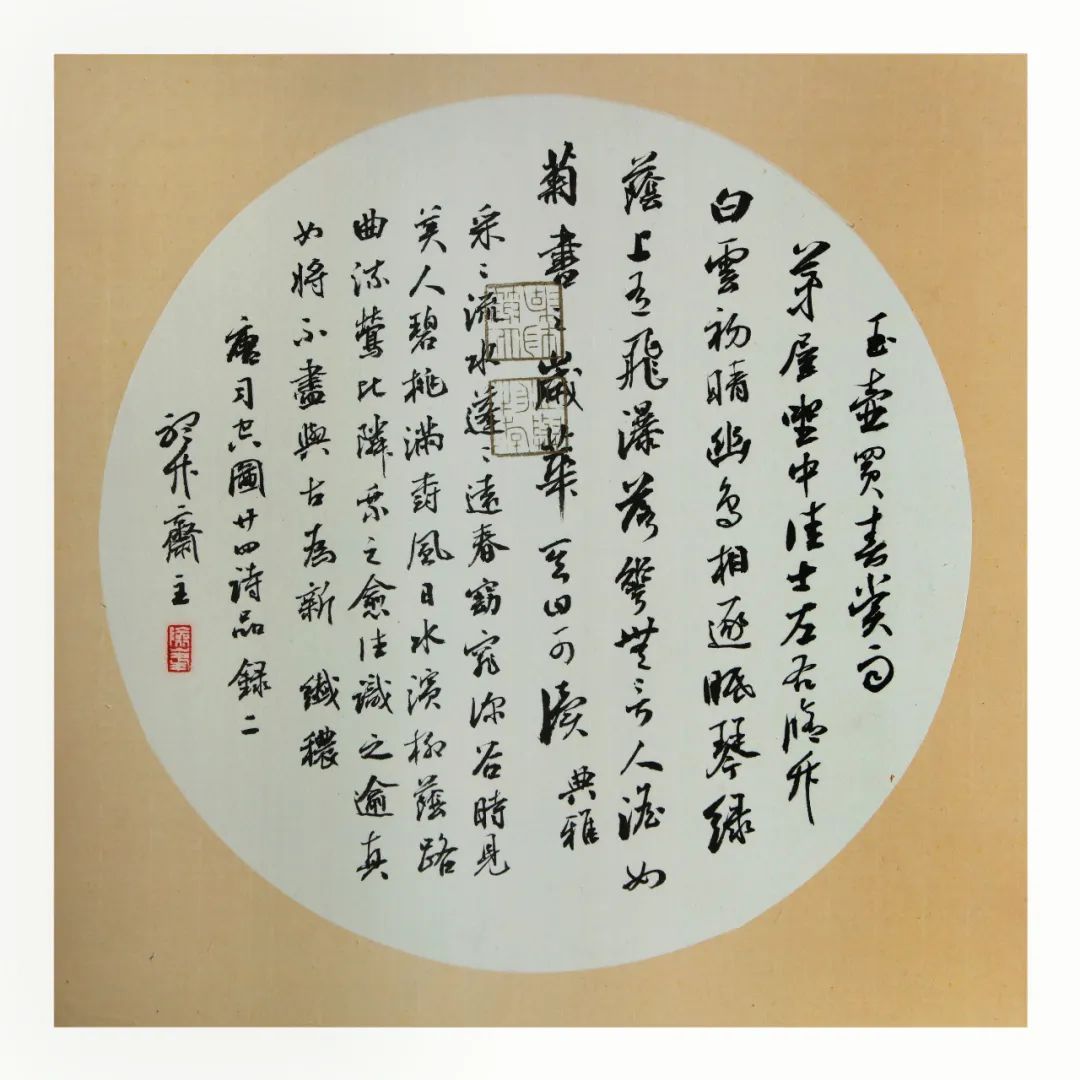 玉壺買春賞雨
茅屋坐中佳士左右脩竹
白雲初晴幽鳥相逐眠琴綠
蔭上有飛瀑落花無言人澹如
菊書之歲華其曰可讀
典雅
采〻流水蓬〻遠春窈窕深谷時見
美人碧桃滿樹風日水濱柳蔭路
曲流鶯比隣乘之愈往識之逾真
如將不盡與古為新 纖穠
唐司空圖廿四詩品錄二
竹齋主